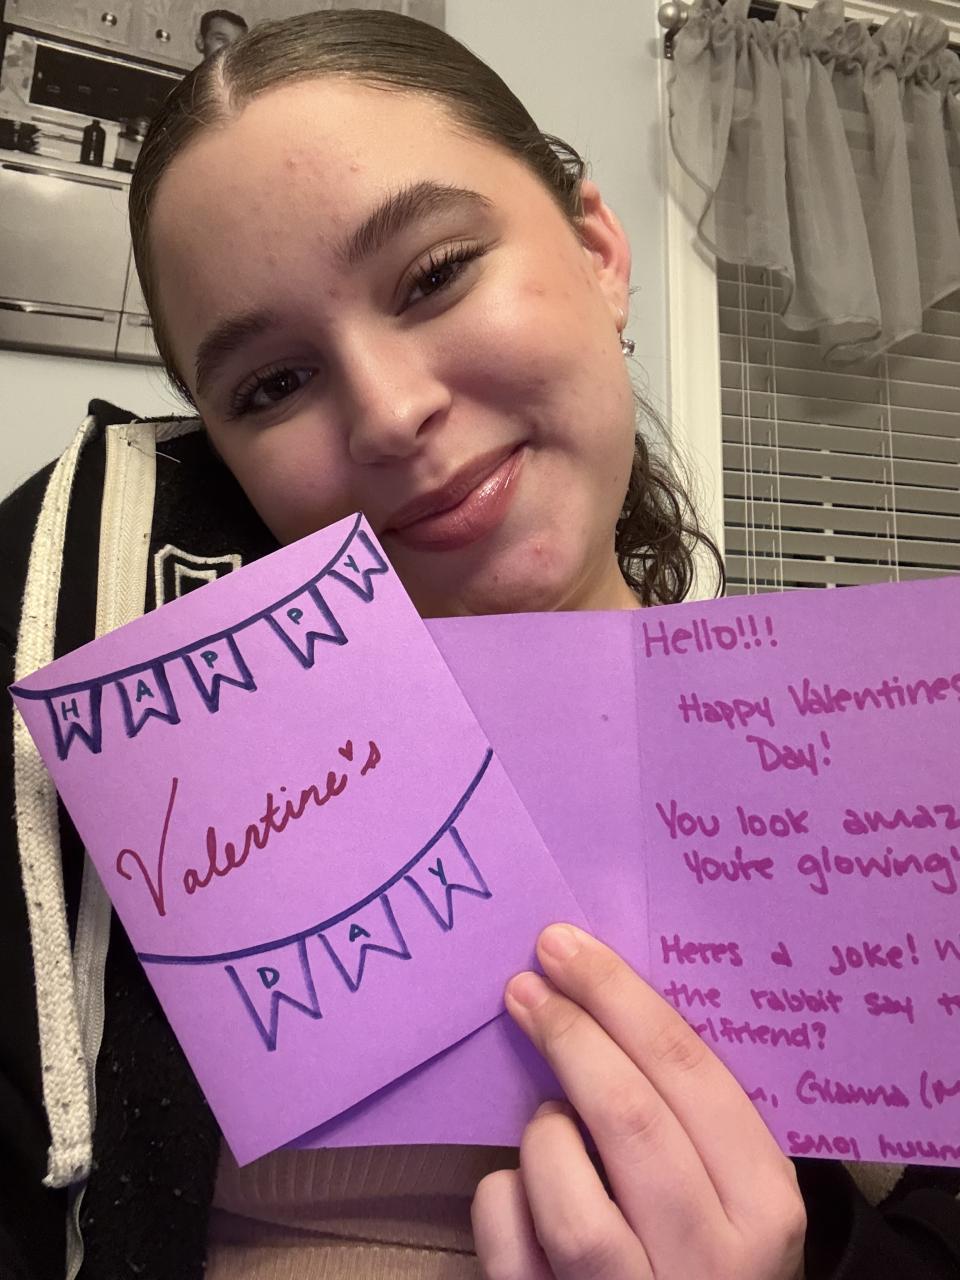 HAPPY
Valentine's
DAY
Hello!!!
Happy Valentines
Day!
You look amaz
You're glowing!
Here's a joke! W
the rabbit say t
rlfriend?
m, Gianna (
sǝʌol ʎuunq